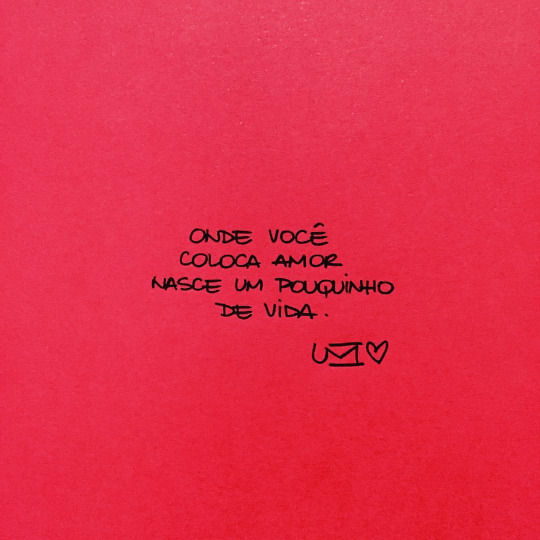 ONDE VOCÊ
COLOCA AMOR
NASCE UM POUQUINHO
DE VIDA.